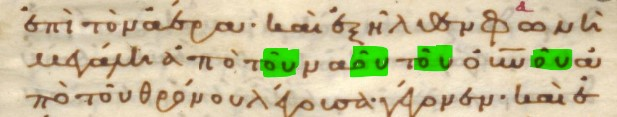 ἐπὶ τὸν ἀέρα· καὶ ἐξῆλθεν φωνὴ
μεγάλη ἀπὸ τοῦ ναοῦ τοῦ οὐνοῦ ἀ
πὸ τοῦ θρόνου λέγουσα· γέγονεν· καὶ ἐ